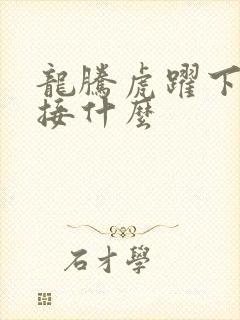 龍騰虎躍下
接什麼
石才學